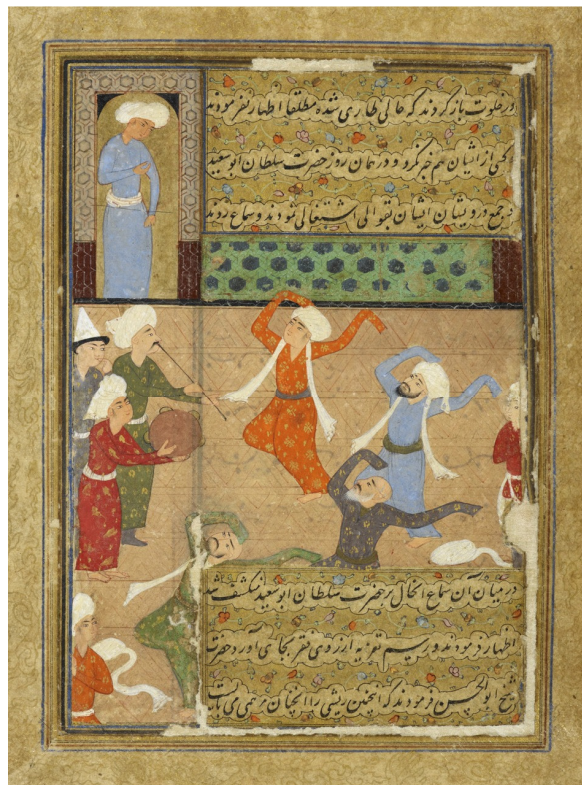 در خلوت باز کردند که حالی طاری شده مطلقا اظهار نفرمودند
کسی از ایشان هم خبر نکرد و در همان روز حضرت سلطان ابوسعید
در جمع درویشان ایشان بقوالی اشتغالی نمودند و سماع زدند
در میان آن سماع انحال بر حضرت سلطان ابوسعید منکشف شد
اظهار فرمودند و رسیم تعزیه ارزوی فقر بجای آورد حضرت
شیخ ابوالحسن فرمودند که انچنین ریشی را انچنان مرهمی می بایست